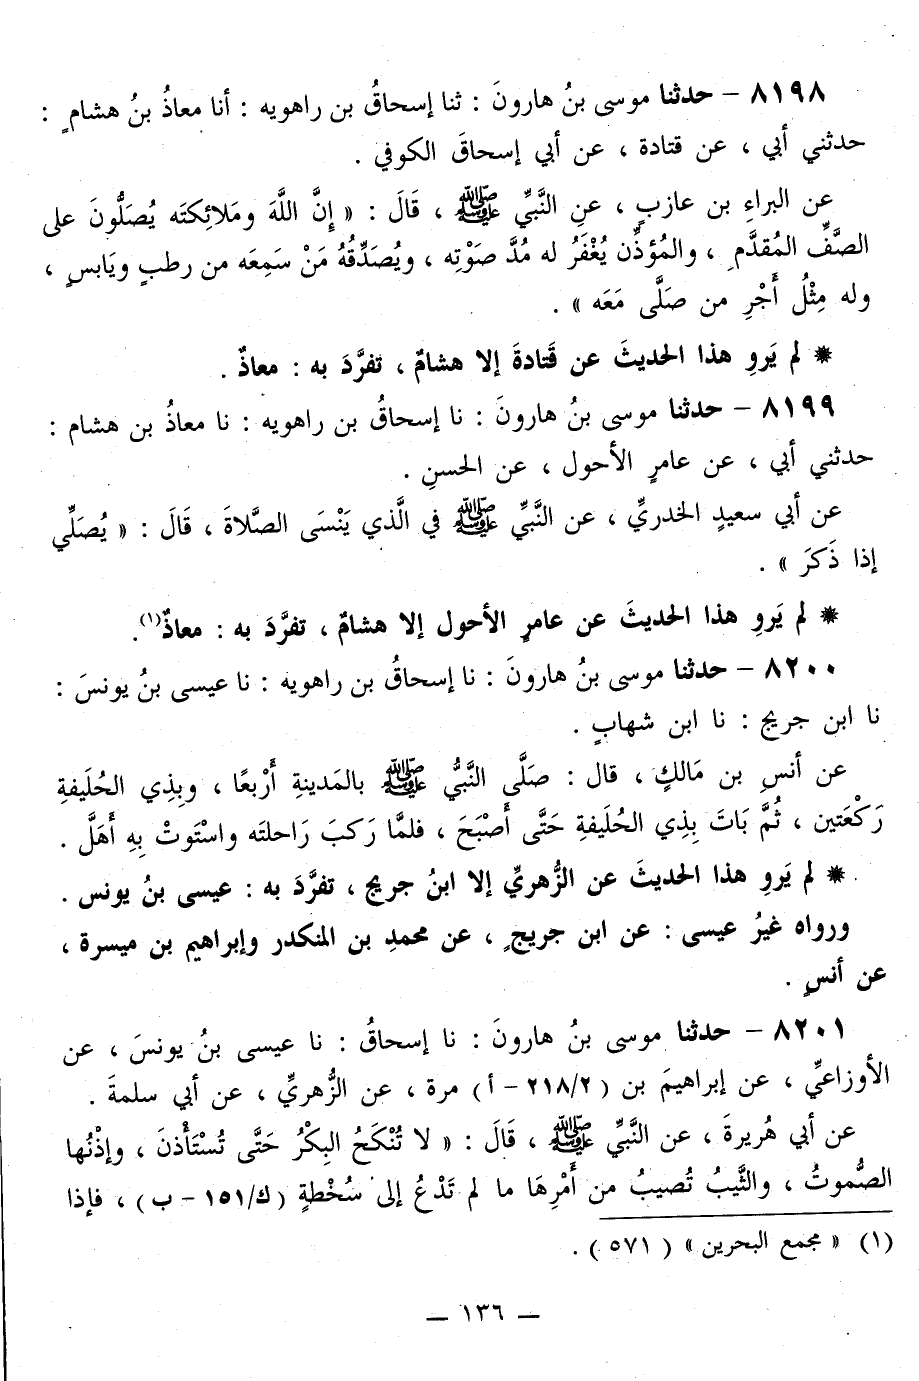 ٨١٩٨ - حدثنا موسى بنُ هارونَ : ثنا إسحاقُ بن راهويه : أنا معاذُ بنُ هشامٍ :
حدثني أبي ، عن قتادة ، عن أبي إسحاقَ الكوفي .
عن البراءِ بن عازبٍ ، عنِ النَّبيِّ ﷺ ، قَالَ : « إِنَّ اللَّهَ ومَلائِكتَه يُصَلُّونَ على
الصَّفِّ المُقدَّمِ ، والمُؤذِّن يُغْفَرُ له مُدَّ صَوْتِه ، ويُصَدِّقُهُ مَنْ سَمِعَه من رطبٍ ويَابسٍ ،
وله مِثْلُ أَجْرِ من صَلَّى مَعَه » .
* لم يَروِ هذا الحديثَ عن قَتادةَ إلا هشامٌ ، تفرَّدَ به : معاذٌ .
٨١٩٩ - حدثنا موسى بنُ هارونَ : نا إسحاقُ بن راهويه : نا معاذُ بن هشام :
حدثني أبي ، عن عامرٍ الأحول ، عن الحسنِ .
عن أبي سعيدٍ الخدريِّ ، عن النَّبيِّ ﷺ في الَّذي يَنْسَى الصَّلاةَ ، قَالَ : « يُصلِّي
إذا ذَكرَ » .
* لم يَروِ هذا الحديثَ عن عامرٍ الأحول إلا هشامٌ ، تفرَّدَ به : معاذٌ(١).
٨٢٠٠ - حدثنا موسى بنُ هارونَ : نا إسحاقُ بن راهويه : نا عيسى بنُ يونسَ :
نا ابن جريج : نا ابن شهابٍ .
عن أنسِ بن مَالكٍ ، قال : صَلَّى النَّبيُّ ﷺ بالمَدينةِ أَرْبعًا ، وبِذِي الحُلَيفةِ
رَكْعَتين ، ثُمَّ بَاتَ بِذِي الحُلَيفةِ حَتَّى أَصْبَحَ ، فلمَّا رَكبَ رَاحلتَه واسْتَوتْ بِهِ أَهَلَّ .
* لم يَروِ هذا الحديثَ عن الزُّهريِّ إلا ابنُ جريج ، تفرَّدَ به : عيسى بنُ يونس .
ورواه غيرُ عيسى : عن ابن جريجٍ ، عن محمدِ بن المنكدر وإبراهيم بن ميسرة ،
عن أنسٍ .
٨٢٠١ - حدثنا موسى بنُ هارونَ : نا إسحاقُ : نا عيسى بنُ يونسَ ، عن
الأوزاعيِّ ، عن إبراهيمَ بن ( ٢١٨/٢ - أ ) مرة ، عن الزُّهريِّ ، عن أبي سلمةَ .
عن أبي هُريرةَ ، عن النَّبيِّ ﷺ ، قَالَ : « لا تُنْكَحُ البِكْرُ حَتَّى تُسْتَأْذنَ ، وإذْنُها
الصُّموتُ ، والثَّيبُ تُصيبُ من أَمْرِهَا ما لم تَدْعُ إلى سُخْطةٍ ( ك/١٥١ - ب ) ، فإذا
(١) « مجمع البحرين » ( ٥٧١ ) .
— ١٣٦ —